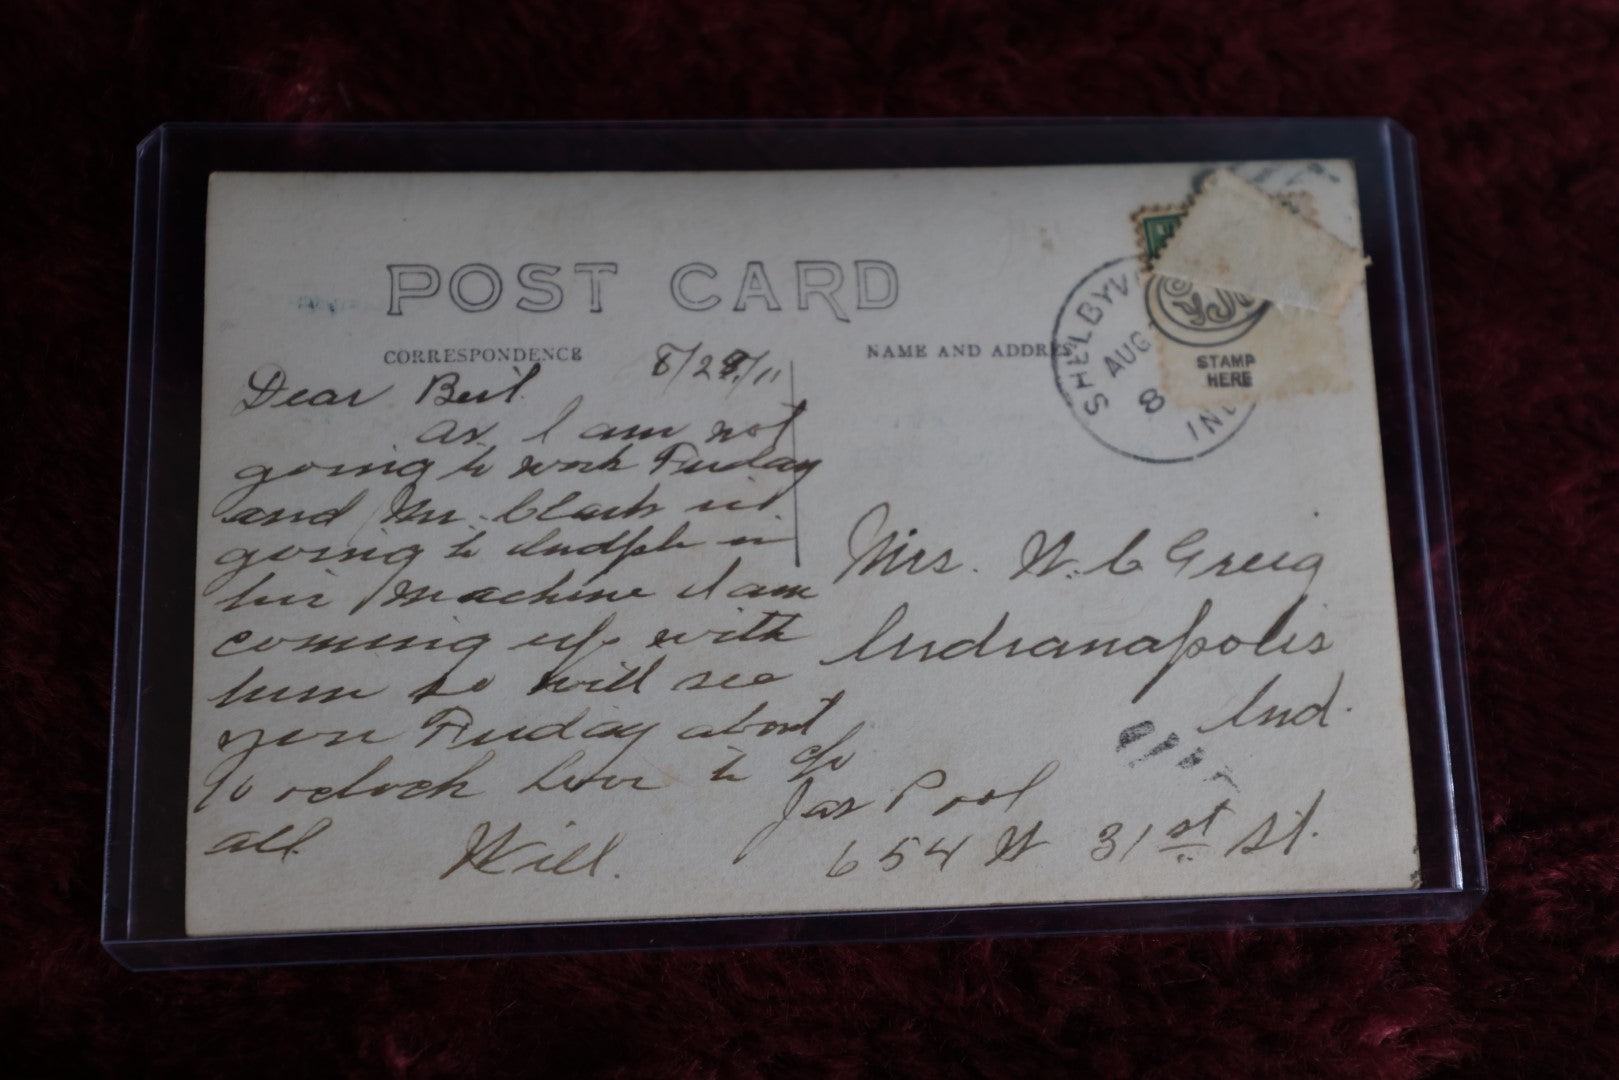 POST CARD
CORRESPONDENCE
NAME AND ADDRESS
SHELBYV
AUG
8
IND
STAMP
HERE
8/29/11
Dear
as I am not
going to work Friday
and Mr. Clark is
going to Indpls in
his Machine I am
coming up with
him so will see
you Friday about
10 oclock love to
all
Will.
Mrs. W. C Greig
Indianapolis
Ind.
c/o
Jas Pool
654 W 31st St.